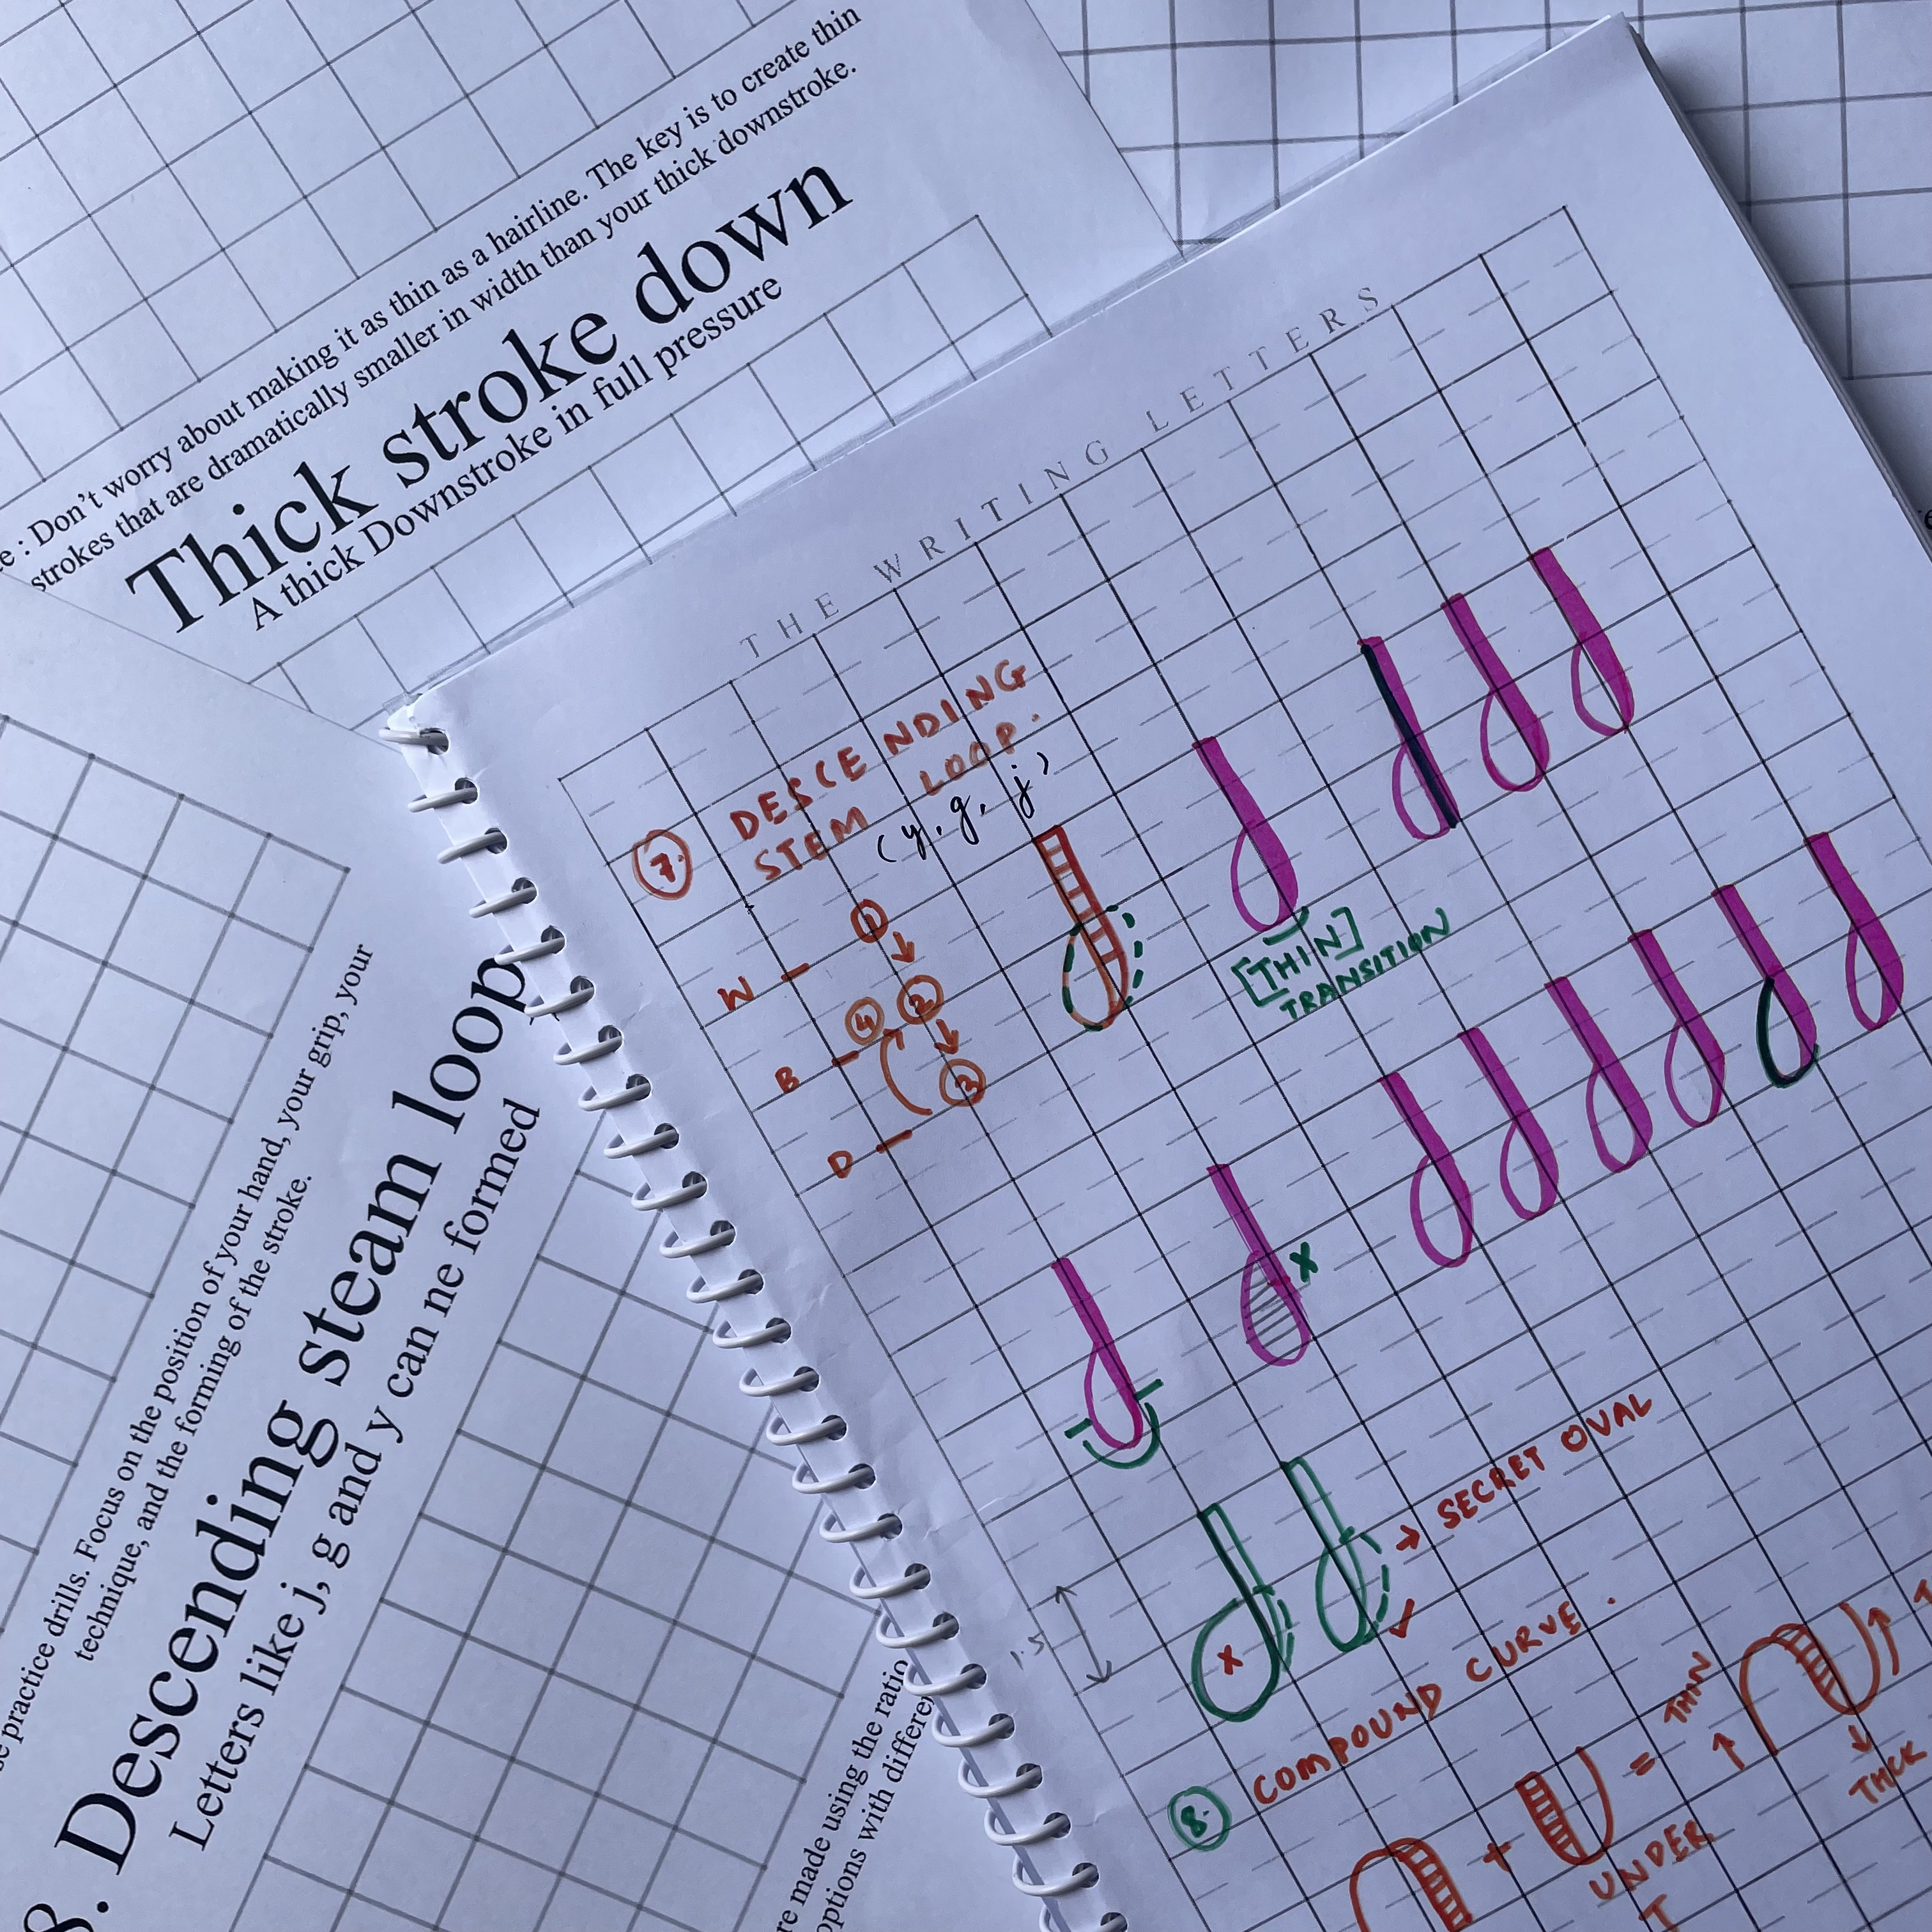 e : Don't worry about making it as thin as a hairline. The key is to create thin
strokes that are dramatically smaller in width than your thick downstroke.
Thick stroke down
A thick Downstroke in full pressure
THE WRITING LETTERS
7. DESCENDING
STEM LOOP.
(y, g, j)
1
W
4 2
B
3
D
[THIN]
TRANSITION
x
→ SECRET OVAL
x
1.5
8. COMPOUND CURVE.
+ = THIN
THICK
UNDER
practice drills. Focus on the position of your hand, your grip, your
technique, and the forming of the stroke.
8. Descending steam loop
Letters like j, g and y can ne formed
re made using the ratio
options with